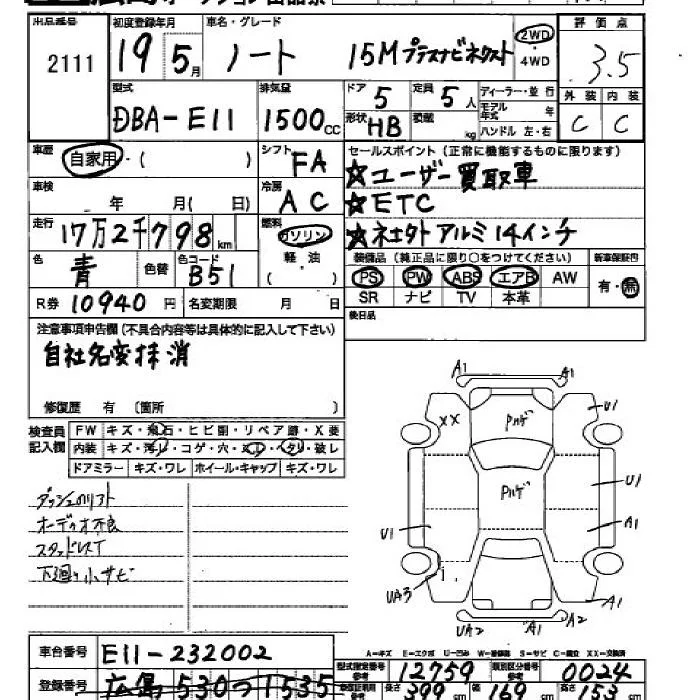 出品番号 初度登録年月 車名・グレード 評価点
2111 19 5月 ノート 15Mプラスナビネクスト 2WD ・ 4WD 3.5
型式 排気量 ドア 定員 ディーラー・並行 外装 内装
DBA-E11 1500cc 5 5人 モデル年式 年 C C
形状 HB 積載 kg ハンドル 左・右
車歴 自家用・( ) シフト FA セールスポイント(正常に機能するものに限ります)
☆ユーザー買取車
車検 年 月( 日) 冷房 AC ☆ETC
走行 17万2千798km 燃料 ガソリン 軽油 ( ) ☆社外アルミ14インチ
色 青 色替 色コード B51 装備品(純正品に限り○をつけてください) 新車保証書
PS PW ABS エアB AW 有・無
R券 10940円 名変期限 月 日 SR ナビ TV 本革
注意事項申告欄(不具合内容等は具体的に記入して下さい) 後日品
自社名変抹消
修復歴 有 〔箇所 〕
検査員記入欄 FW キズ・飛石・ヒビ割・リペア跡・X要
内装 キズ・汚レ・コゲ・穴・ ・ヘタレ・破レ
ドアミラー キズ・ワレ ホイール・キャップ キズ・ワレ
オーディオ不良
スタッドレスT
下廻り小サビ
A1 A1
XX Pハゲ U1
Pハゲ U1
U1 A1
UA3 A1
UA2 A1 A2
A=キズ E=エクボ U=凹み W=補修跡 S=サビ C=腐食 XX=交換済
車台番号 E11-232002 型式指定番号 参考 12759 類別区分番号 参考 0024
登録番号 広島 530 つ 1535 長さ 399cm 幅 169cm 高さ 153cm